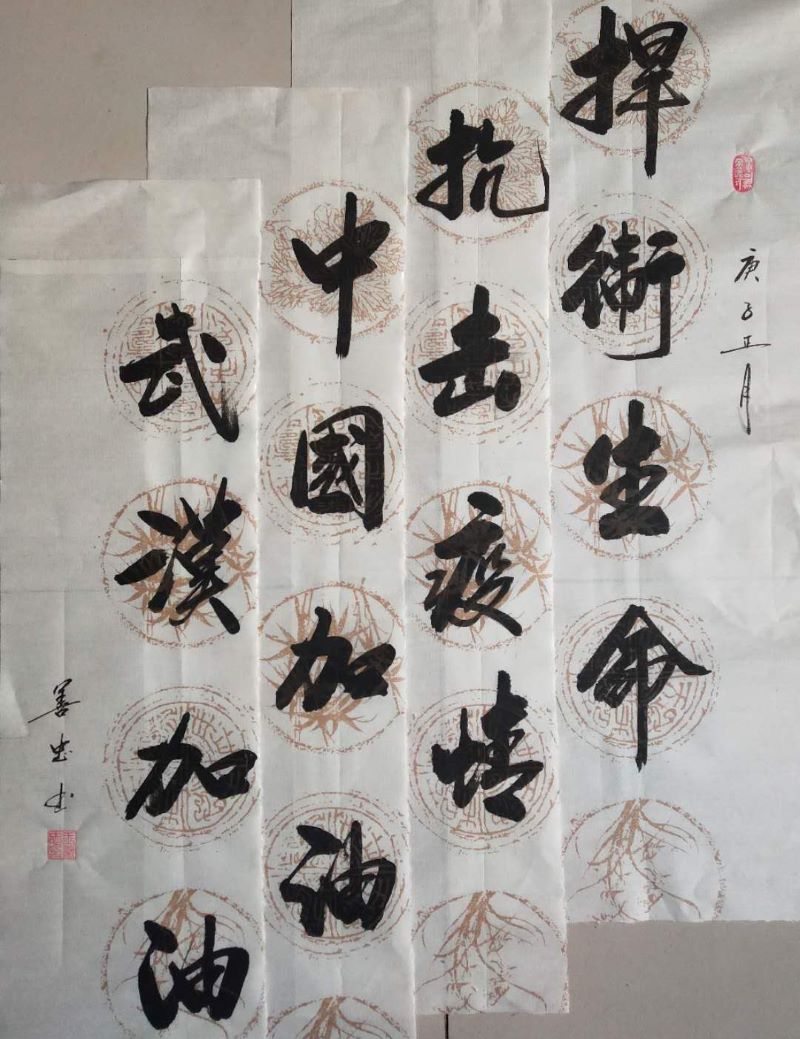 庚子正月
捍衛生命
抗击疫情
中國加油
武漢加油
善忠书